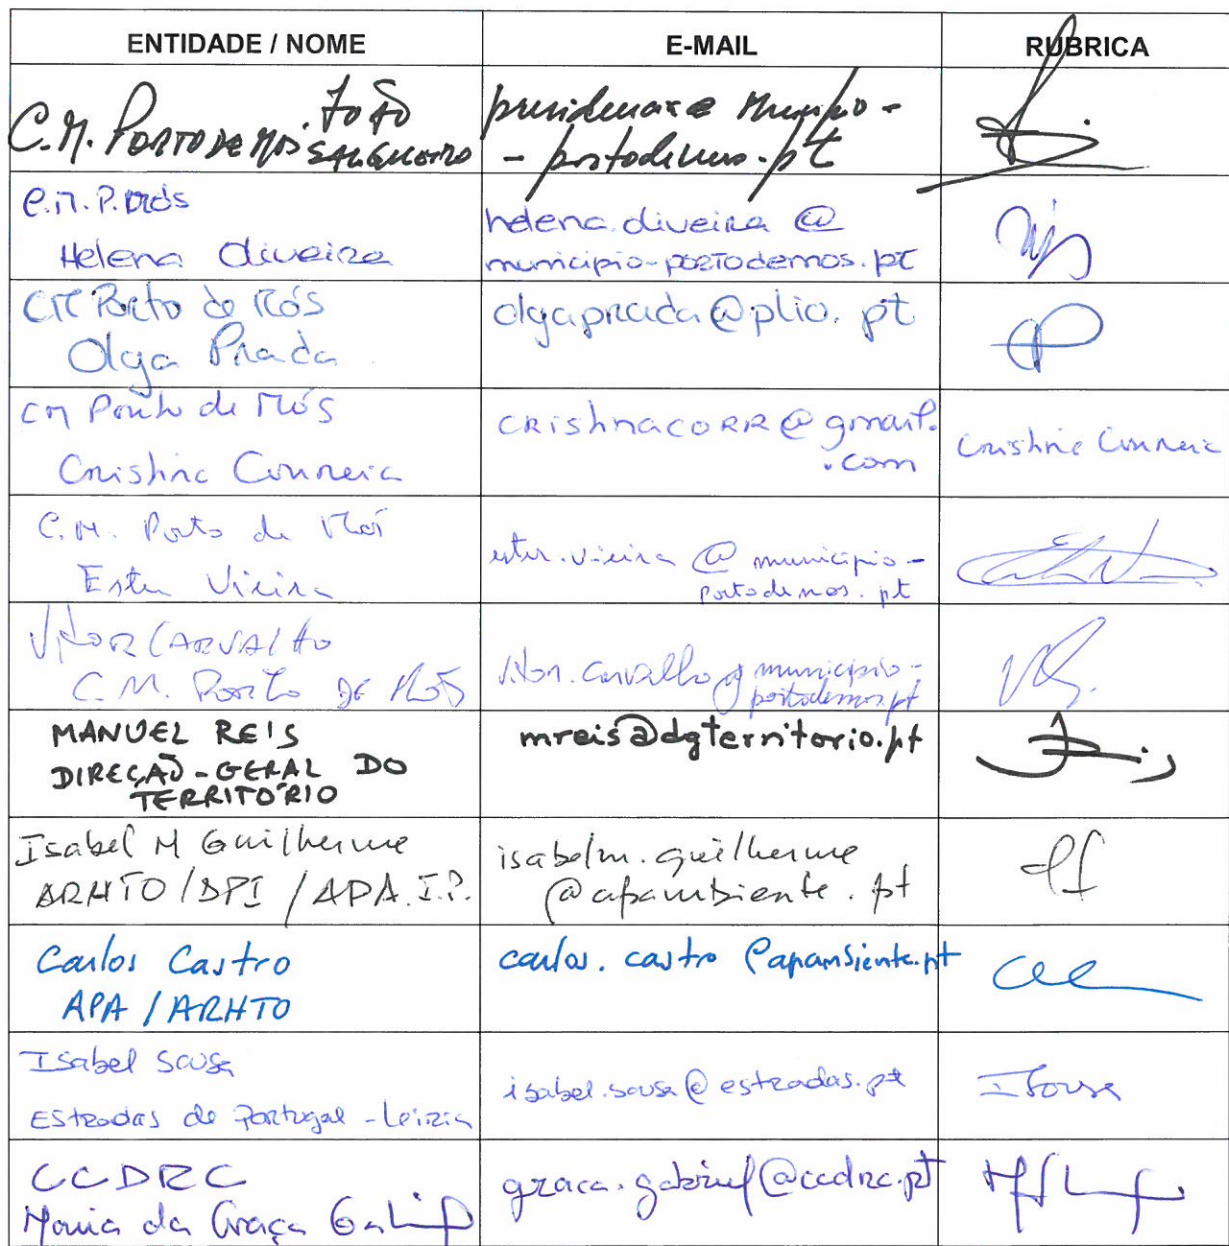 ENTIDADE / NOME E-MAIL RUBRICA
C.M. PORTO DE MÓS JOÃO
SALGUEIRO
presidencia@municipio-
-portodemos.pt
C.M.P.Mós
Helena Oliveira
helena.oliveira@
municipio-portodemos.pt
CM Porto de Mós
Olga Prada
olgaprada@plio.pt
CM Porto de Mós
Cristina Correia
cristinacorr@gmail.
.com
Cristina Correia
C.M. Porto de Mós
Ester Vieira
ester.vieira@municipio-
portodemos.pt
VITOR CARVALHO
C.M. Porto de Mós
vitor.carvalho@municipio-
portodemos.pt
MANUEL REIS
DIREÇÃO-GERAL DO
TERRITÓRIO
mreis@dgterritorio.pt
Isabel M Guilherme
ARHTO/DPI/APA.I.P.
isabelm.guilherme
@apambiente.pt
Carlos Castro
APA/ARHTO
carlos.castro@apambiente.pt
Isabel Sousa
Estradas de Portugal - Leiria
isabel.sousa@estradas.pt
ISousa
CCDRC
Maria da Graça Gabriel
graca.gabriel@ccdrc.pt